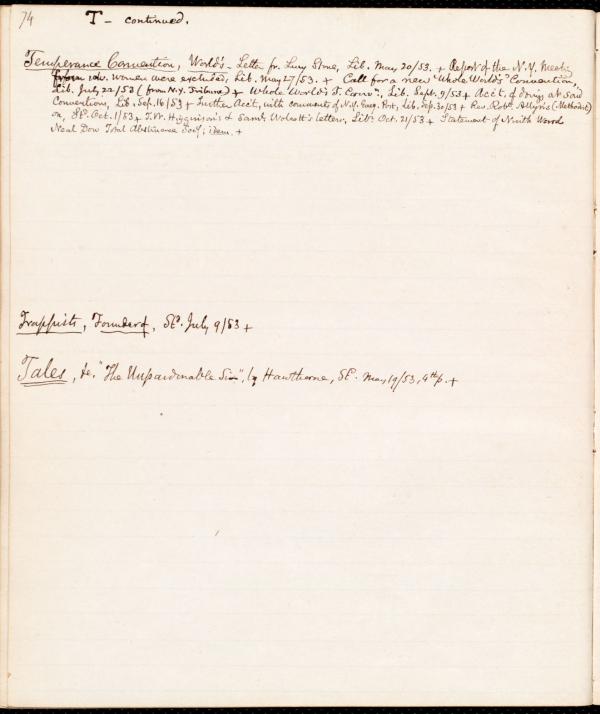 74
T - continued.
Temperance Convention, World's - Letter fr. Lucy Stone, Lib. May 20/53. + Report of the N.Y. Meetg
from wh. women were excluded, Lib. May 27/53. + Call for a new "Whole World's" Convention,
Lib. July 22/53 (from N.Y. Tribune) + Whole World's T. Convn., Lib. Sept. 9/53 + Acct. of doings at said
Conventions, Lib. Sep. 16/53 + Further Acct, with comments of N.Y. Post, Lib. Sep. 30/53 + Rev. Robt. (Methodist)
on, Sd. Oct. 1/53 + T.W. Higginson's & Saml. Wolcott's letters, Lib. Oct. 21/53 + Statement of Ninth Ward
Neal Dow Total Abstinence Socy; idem. +
Trappists, Founder of, Sd. July 9/53 +
Tales, &c. "The Unpardonable Sin", by Hawthorne, Sd. May 19/53, 4th p. +